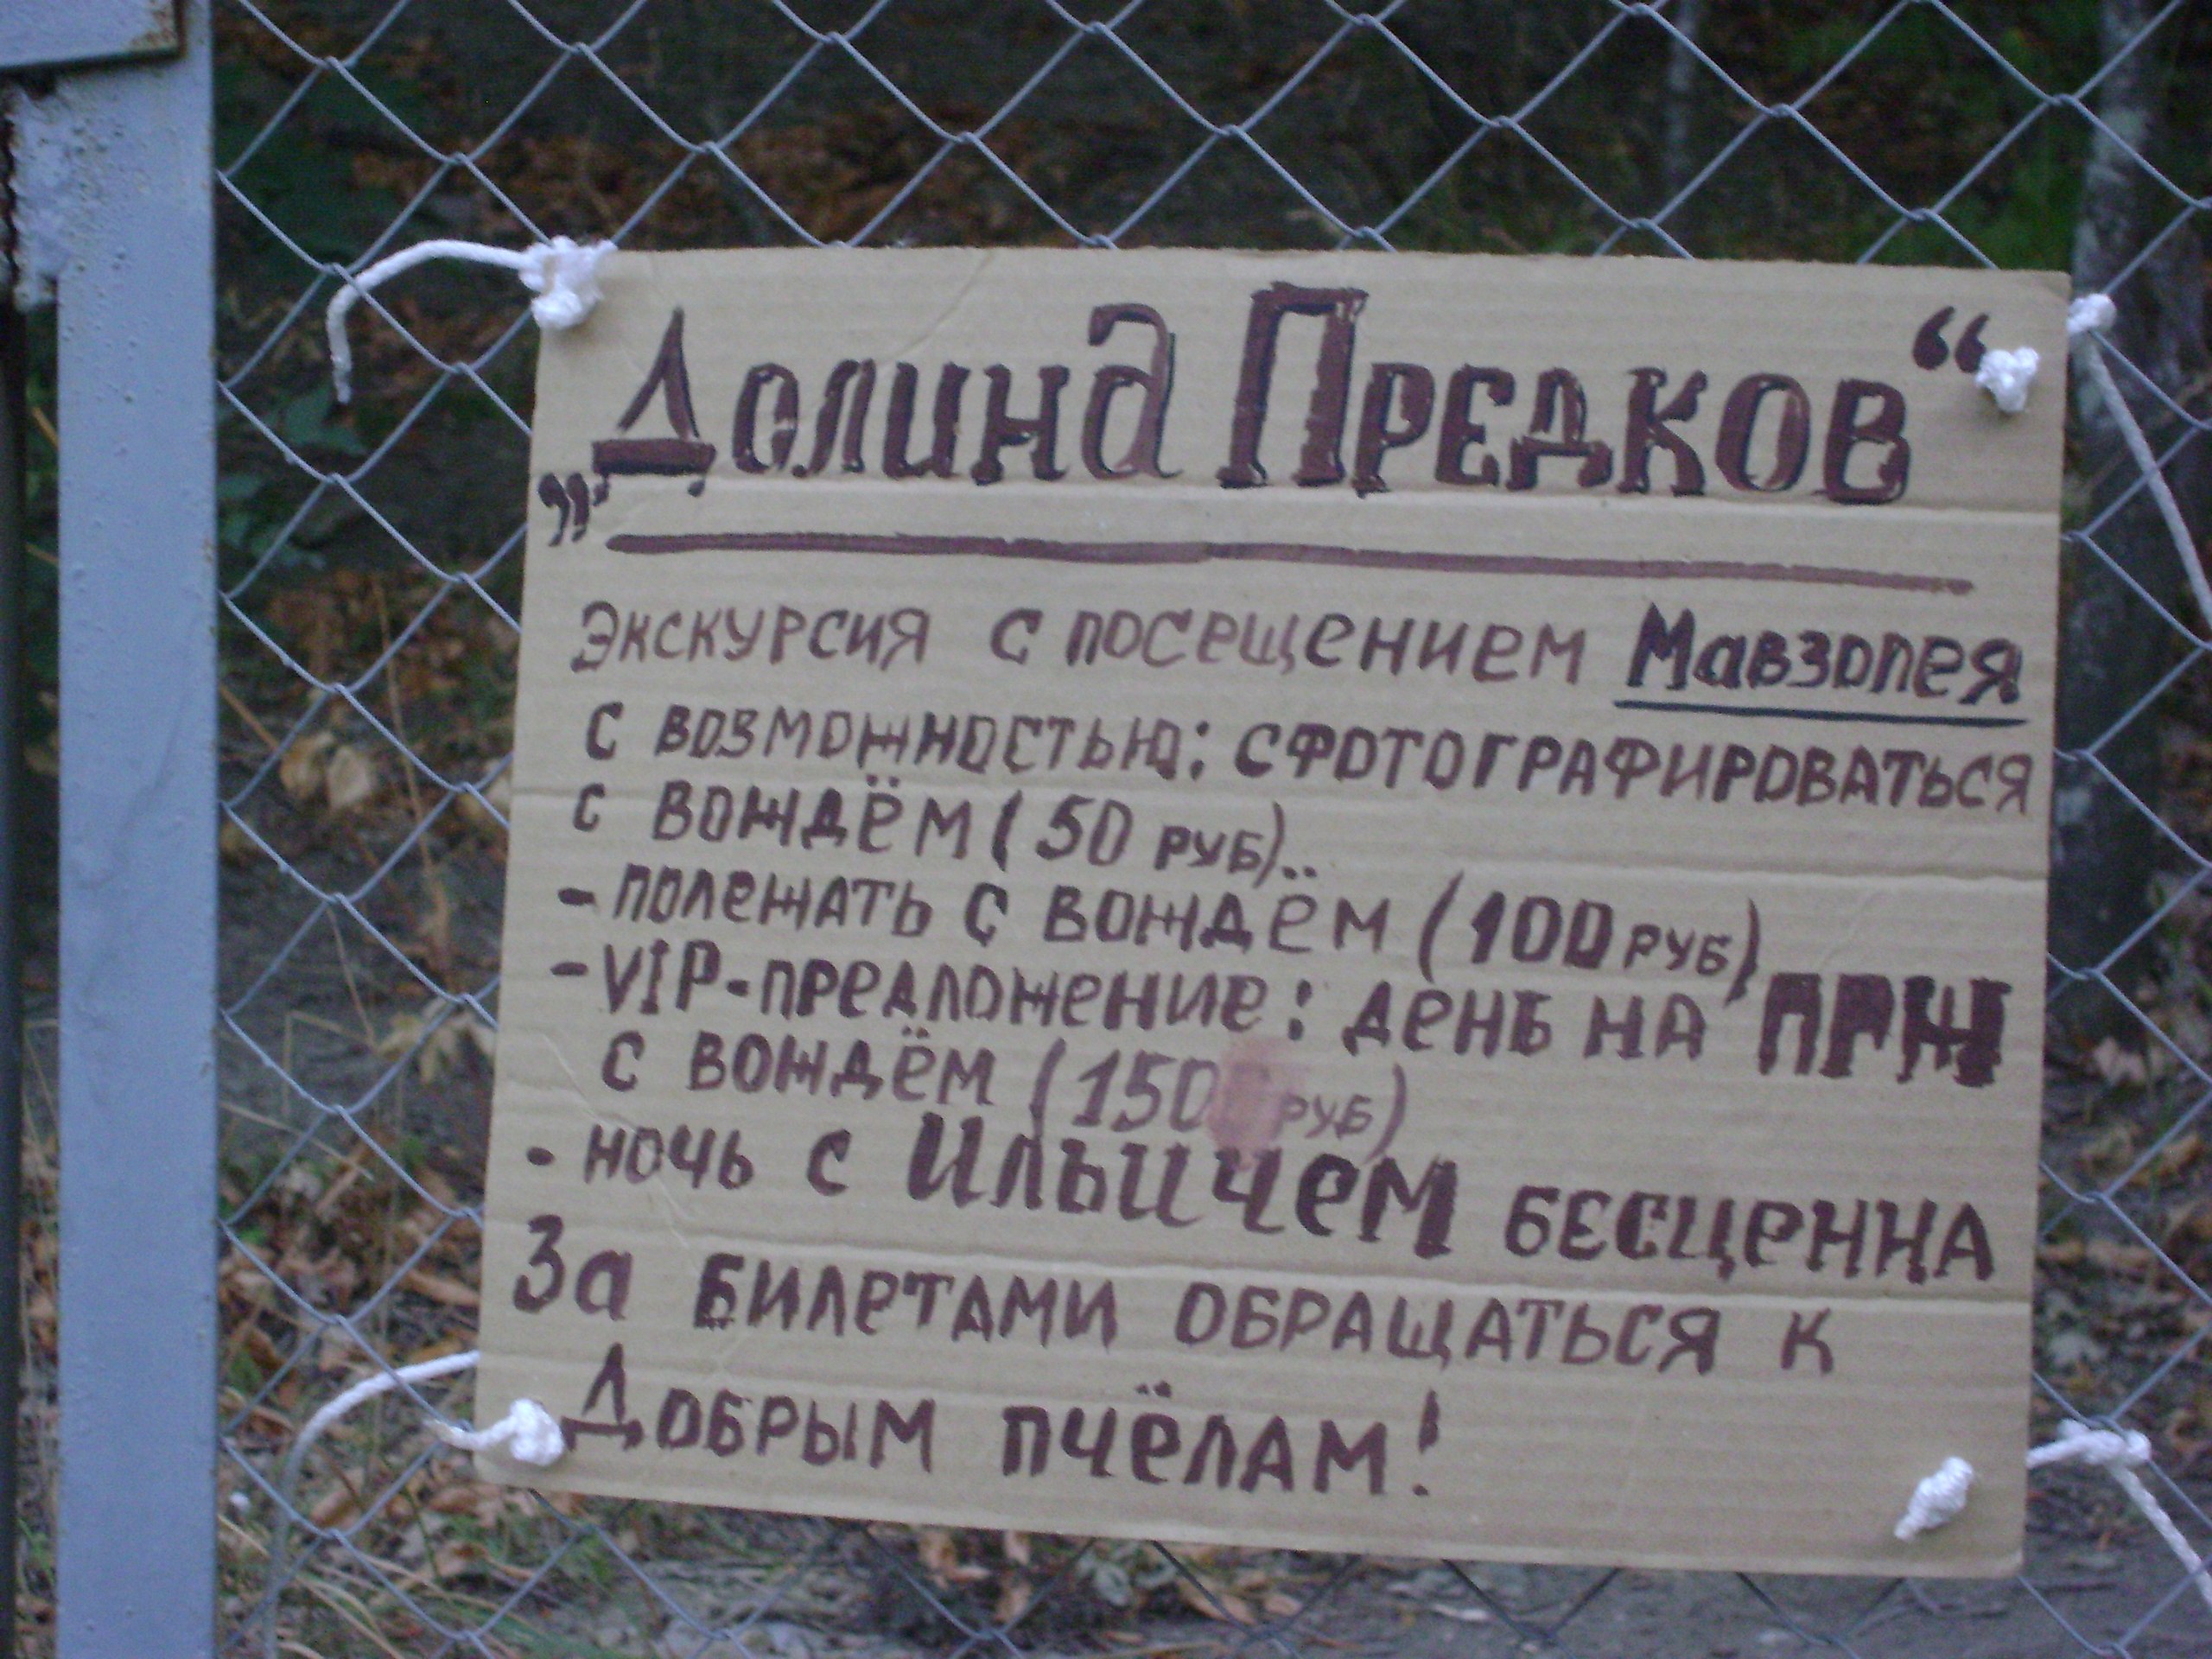 „Долина Предков“
Экскурсия с посещением Мавзолея
с возможностью: сфотографироваться
с вождём (50 руб)..
- полежать с вождём (100 руб)
- VIP-предложение: день на ПРЖ
с вождём (150 руб)
- ночь с Ильичем бесценна
За билетами обращаться к
Добрым пчёлам!